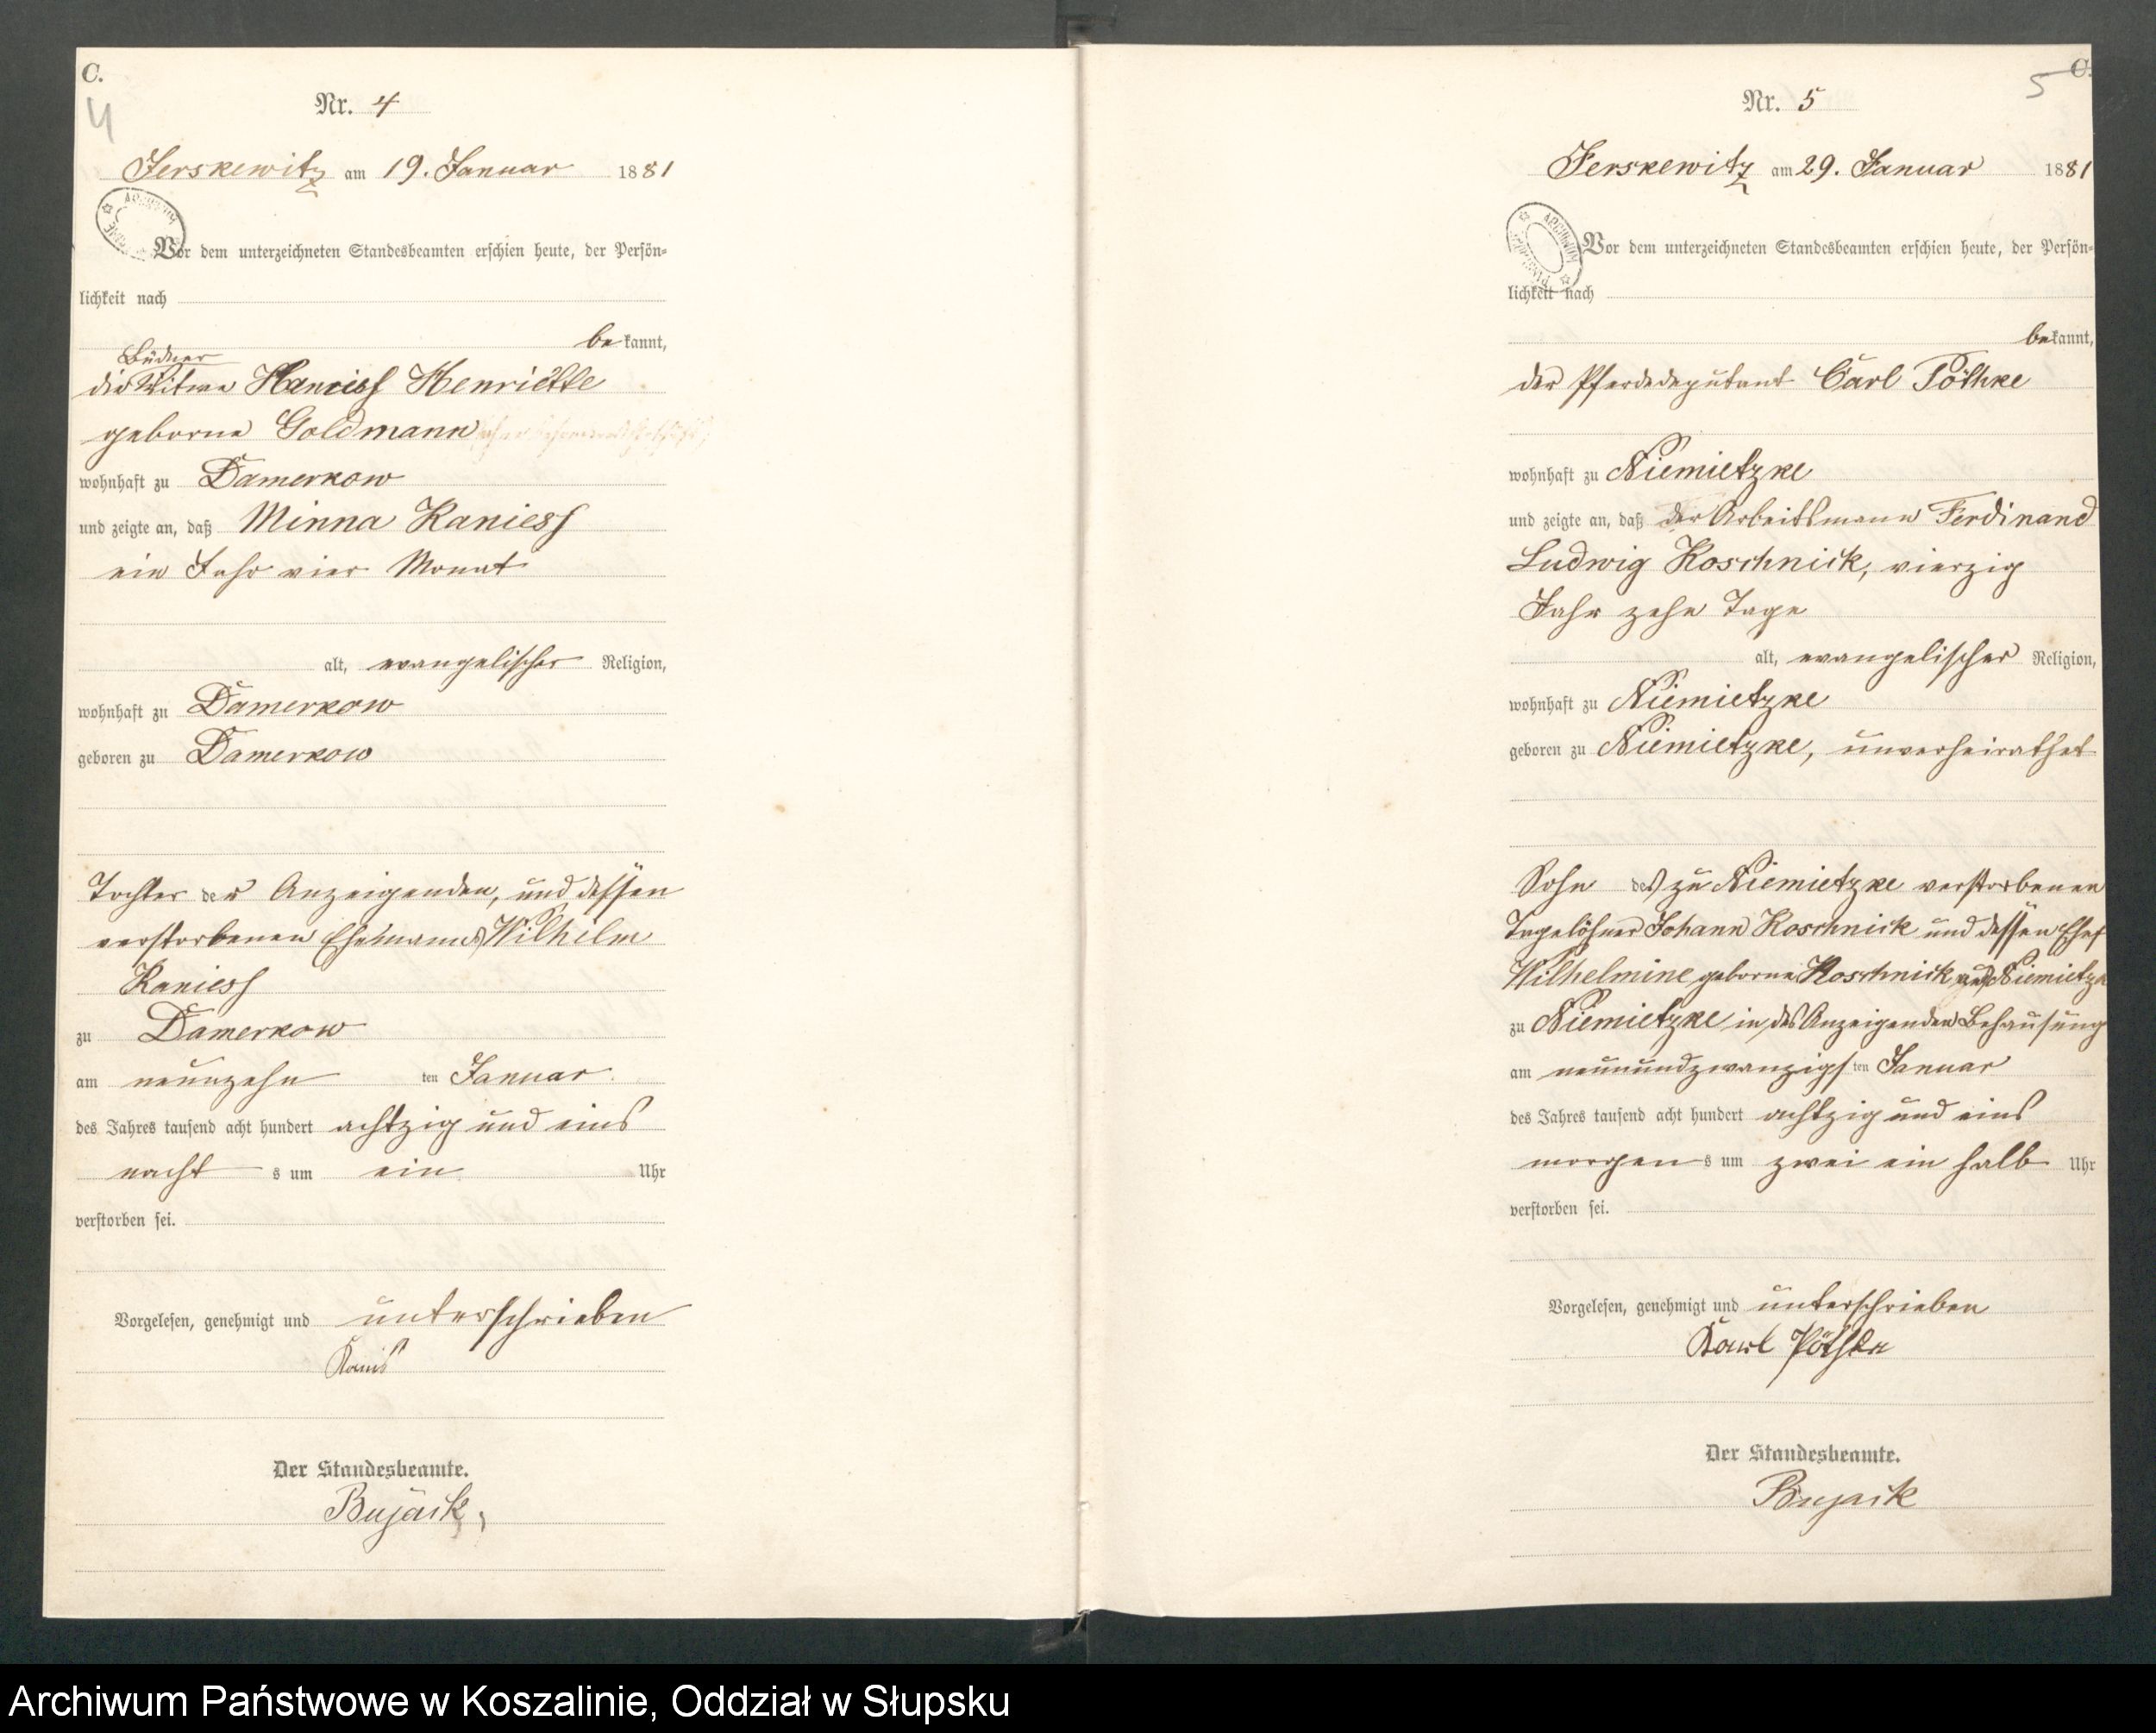 C.
4
Nr. 4
Jerskewitz am 19. Januar 1881
Vor dem unterzeichneten Standesbeamten erschien heute, der Persön-
lichkeit nach
bekannt,
Büdner
die Witwe Kaniess Henriette
geborne Goldmann
wohnhaft zu Damerkow
und zeigte an, daß Minna Kaniess
ein Jahr vier Monat
alt, evangelischer Religion,
wohnhaft zu Damerkow
geboren zu Damerkow
Tochter der Anzeigenden, und dessen
verstorbenen Ehemannes Wilhelm
Kaniess
zu Damerkow
am neunzehn ten Januar
des Jahres tausend acht hundert achtzig und eins
nacht s um ein Uhr
verstorben sei.
Vorgelesen, genehmigt und unterschrieben
Kanis
Der Standesbeamte.
Bujack
C.
5
Nr. 5
Jerskewitz am 29. Januar 1881
ARCHIWUM
Vor dem unterzeichneten Standesbeamten erschien heute, der Persön-
lichkeit nach
bekannt,
der Pferdedeputant Carl Pöthke
wohnhaft zu Niemietzke
und zeigte an, daß der Arbeitsmann Ferdinand
Ludwig Koschnick, vierzig
Jahr zehn Tage
alt, evangelischer Religion,
wohnhaft zu Niemietzke
geboren zu Niemietzke, unverheirathet
Sohn des zu Niemietzke verstorbenen
Tagelöhner Johann Koschnick und dessen Ehef
Wilhelmine geborne Koschnick aus Niemietzke
zu Niemietzke in des Anzeigenden Behausung
am neunundzwanzigs ten Januar
des Jahres tausend acht hundert achtzig und eins
morgen s um zwei ein halb Uhr
verstorben sei.
Vorgelesen, genehmigt und unterschrieben
Karl Pöthke
Der Standesbeamte.
Bujack
Archiwum Państwowe w Koszalinie, Oddział w Słupsku